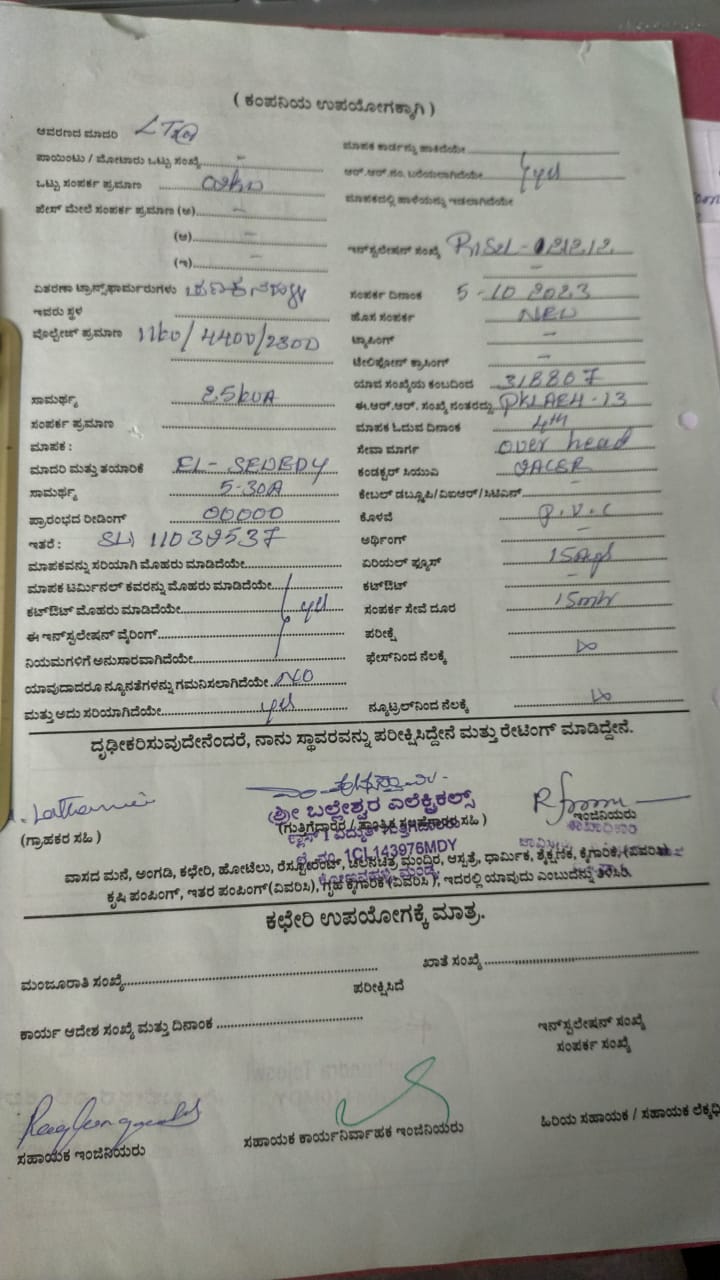 ( ಕಂಪನಿಯ ಉಪಯೋಗಕ್ಕಾಗಿ )
ಆವರಣದ ಮಾದರಿ
ಮಾಪಕ ಕಾರ್ಡನ್ನು ಹಾಕಿದೆಯೇ
ಪಾಯಿಂಟು / ಮೋಟಾರು ಒಟ್ಟು ಸಂಖ್ಯೆ -
ಆರ್.ಆರ್.ಸಂ. ಬರೆಯಲಾಗಿದೆಯೇ yes
ಒಟ್ಟು ಸಂಪರ್ಕ ಪ್ರಮಾಣ
ಮಾಪಕದಲ್ಲಿ ಹಾಳೆಯನ್ನು ಇಡಲಾಗಿದೆಯೇ
ಪೇಸ್ ಮೇಲೆ ಸಂಪರ್ಕ ಪ್ರಮಾಣ (ಅ) -
(ಆ) -
ಇನ್‌ಸ್ಟಲೇಷನ್ ಸಂಖ್ಯೆ
(ಇ) -
ವಿತರಣಾ ಟ್ರಾನ್ಸ್‌ಫಾರ್ಮರುಗಳು
ಸಂಪರ್ಕ ದಿನಾಂಕ 5-10 2023
ಇವರು ಸ್ಥಳ
ಹೊಸ ಸಂಪರ್ಕ NEW
ವೊಲ್ಟೇಜ್ ಪ್ರಮಾಣ 11kv/440v/230v
ಟ್ಯಾಪಿಂಗ್ -
ಟೆಲಿಫೋನ್ ಕ್ರಾಸಿಂಗ್ -
ಯಾವ ಸಂಖ್ಯೆಯ ಕಂಬದಿಂದ 318807
ಸಾಮರ್ಥ್ಯ 25kVA
ಈ.ಆರ್.ಆರ್. ಸಂಖ್ಯೆ ನಂತರದ್ದು PKLAEH-13
ಸಂಪರ್ಕ ಪ್ರಮಾಣ
ಮಾಪಕ ಓದುವ ದಿನಾಂಕ 4th
ಮಾಪಕ :
ಸೇವಾ ಮಾರ್ಗ over head
ಮಾದರಿ ಮತ್ತು ತಯಾರಿಕೆ
ಕಂಡಕ್ಟರ್ ಸಿಯುವಿ
ಸಾಮರ್ಥ್ಯ 5-30A
ಕೇಬಲ್ ಡಬ್ಲೂಪಿ/ವಿಐಆರ್/ಸಿಟಿಎನ್ -
ಪ್ರಾರಂಭದ ರೀಡಿಂಗ್ 00000
ಕೊಳವೆ P.V.C
ಇತರೆ : SLN 11039537
ಅರ್ಥಿಂಗ್ -
ಮಾಪಕವನ್ನು ಸರಿಯಾಗಿ ಮೊಹರು ಮಾಡಿದೆಯೇ
ಏರಿಯಲ್ ಫ್ಯೂಸ್
ಮಾಪಕ ಟರ್ಮಿನಲ್ ಕವರನ್ನು ಮೊಹರು ಮಾಡಿದೆಯೇ
ಕಟ್‌ಔಟ್ -
ಕಟ್‌ಔಟ್ ಮೊಹರು ಮಾಡಿದೆಯೇ yes
ಸಂಪರ್ಕ ಸೇವೆ ದೂರ 15mtr
ಈ ಇನ್‌ಸ್ಟಲೇಷನ್ ವೈರಿಂಗ್
ಪರೀಕ್ಷೆ
ನಿಯಮಗಳಿಗೆ ಅನುಸಾರವಾಗಿದೆಯೇ
ಫೇಸ್‌ನಿಂದ ನೆಲಕ್ಕೆ
ಯಾವುದಾದರೂ ನ್ಯೂನತೆಗಳನ್ನು ಗಮನಿಸಲಾಗಿದೆಯೇ NO
ಮತ್ತು ಅದು ಸರಿಯಾಗಿದೆಯೇ yes
ನ್ಯೂಟ್ರಲ್‌ನಿಂದ ನೆಲಕ್ಕೆ
ದೃಢೀಕರಿಸುವುದೇನೆಂದರೆ, ನಾನು ಸ್ಥಾವರವನ್ನು ಪರೀಕ್ಷಿಸಿದ್ದೇನೆ ಮತ್ತು ರೇಟಿಂಗ್ ಮಾಡಿದ್ದೇನೆ.
ಶ್ರೀ ಬಲ್ಲೇಶ್ವರ ಎಲೆಕ್ಟ್ರಿಕಲ್ಸ್
(ಗ್ರಾಹಕರ ಸಹಿ )
(ಗುತ್ತಿಗೆದಾರರ / ತಾಂತ್ರಿಕ ಸಲಹೆಗಾರರ ಸಹಿ )
ಇಂಜಿನಿಯರು
1CL143976MDY
ವಾಸದ ಮನೆ, ಅಂಗಡಿ, ಕಛೇರಿ, ಹೋಟೆಲು, ರೆಸ್ಟೋರೆಂಟ್, ಚಲನಚಿತ್ರ ಮಂದಿರ, ಆಸ್ಪತ್ರೆ, ಧಾರ್ಮಿಕ, ಶೈಕ್ಷಣಿಕ, ಕೈಗಾರಿಕೆ, (ವಿವರಿಸಿ)
ಕೃಷಿ ಪಂಪಿಂಗ್, ಇತರ ಪಂಪಿಂಗ್ (ವಿವರಿಸಿ), ಗೃಹ ಕೈಗಾರಿಕೆ (ವಿವರಿಸಿ ), ಇದರಲ್ಲಿ ಯಾವುದು ಎಂಬುದನ್ನು ತಿಳಿಸಿರಿ.
ಕಛೇರಿ ಉಪಯೋಗಕ್ಕೆ ಮಾತ್ರ.
ಮಂಜೂರಾತಿ ಸಂಖ್ಯೆ
ಖಾತೆ ಸಂಖ್ಯೆ
ಪರೀಕ್ಷಿಸಿದೆ
ಕಾರ್ಯ ಆದೇಶ ಸಂಖ್ಯೆ ಮತ್ತು ದಿನಾಂಕ
ಇನ್‌ಸ್ಟಲೇಷನ್ ಸಂಖ್ಯೆ
ಸಂಪರ್ಕ ಸಂಖ್ಯೆ
ಸಹಾಯಕ ಇಂಜಿನಿಯರು
ಸಹಾಯಕ ಕಾರ್ಯನಿರ್ವಾಹಕ ಇಂಜಿನಿಯರು
ಹಿರಿಯ ಸಹಾಯಕ / ಸಹಾಯಕ